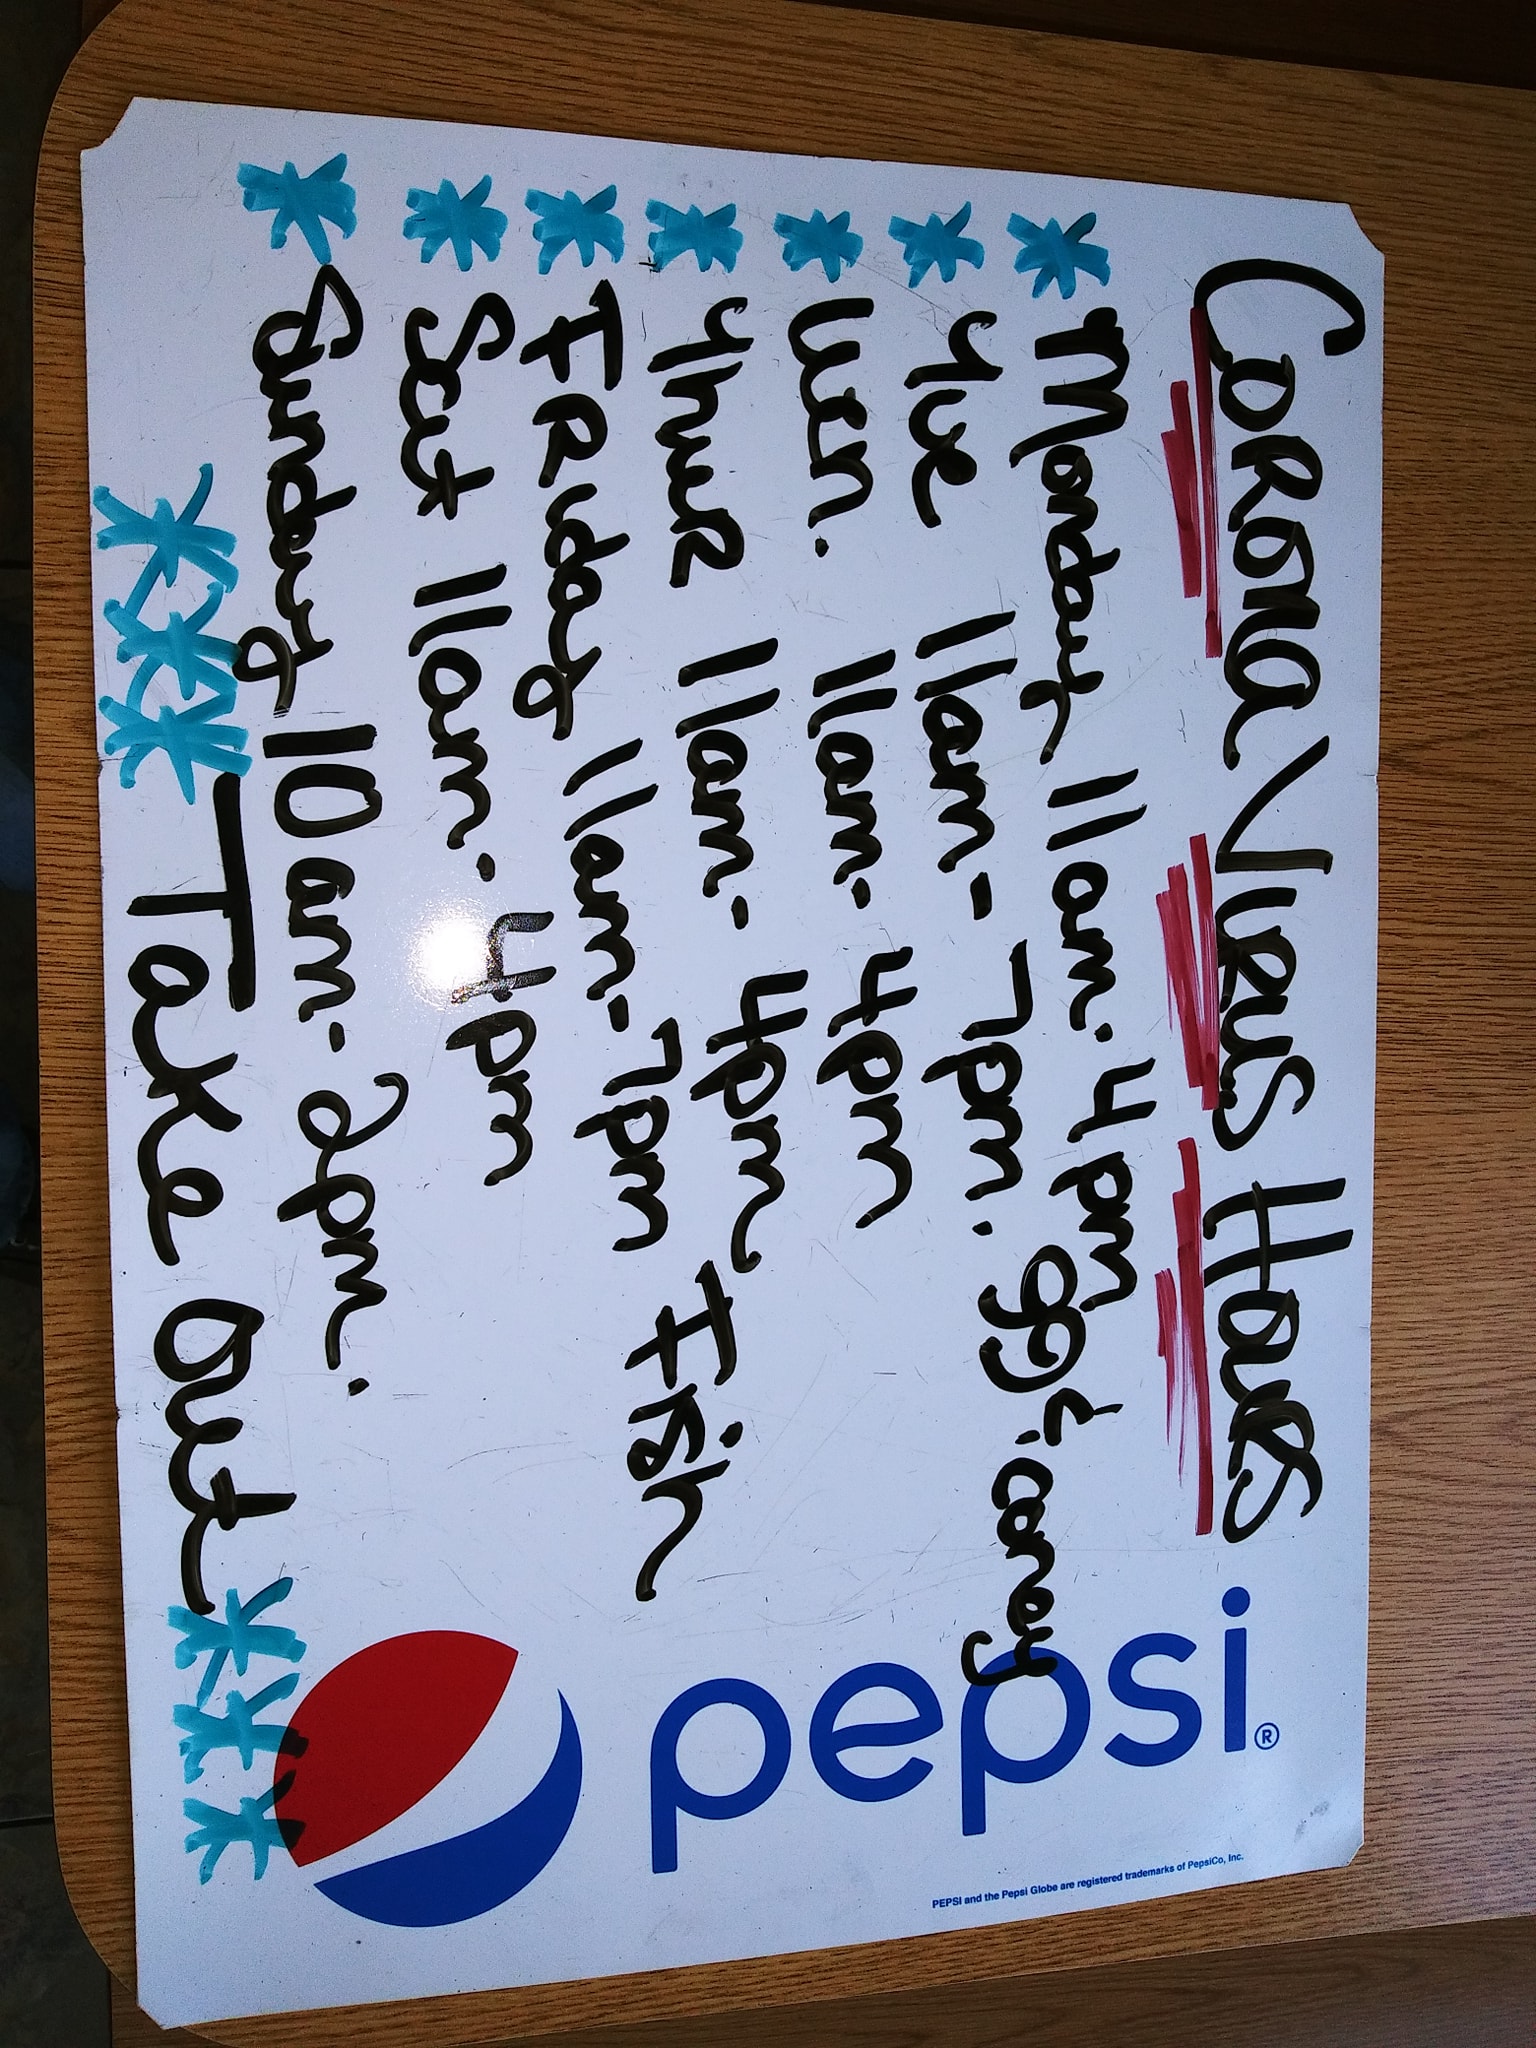 Corona Virus Hours
* Monday 11am - 4pm
* Tue 11am - 7pm.
* Wen. 11am - 4pm
* Thur 11am - 4pm
* Friday 11am - 7pm Fish
* Sat 11am - 4pm
* Sunday 10am - 2pm.
*** Take Out ***
pepsi®
PEPSI and the Pepsi Globe are registered trademarks of PepsiCo, Inc.